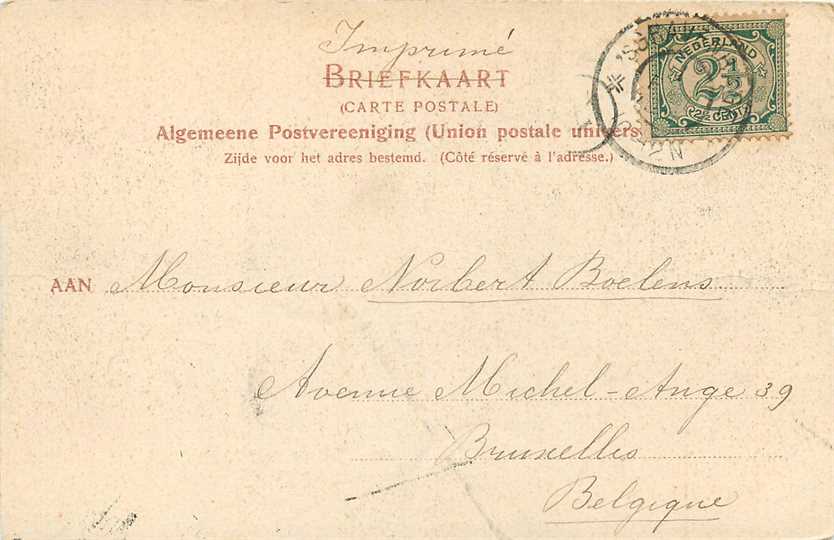 Imprimé
BRIEFKAART
(CARTE POSTALE)
Algemeene Postvereeniging (Union postale univers
Zijde voor het adres bestemd. (Côté réservé à l'adresse.)
NEDERLAND
2 1/2
2½ CENT
AAN Monsieur Norbert Boelens
Avenue Michel-Ange 39
Bruxelles
Belgique